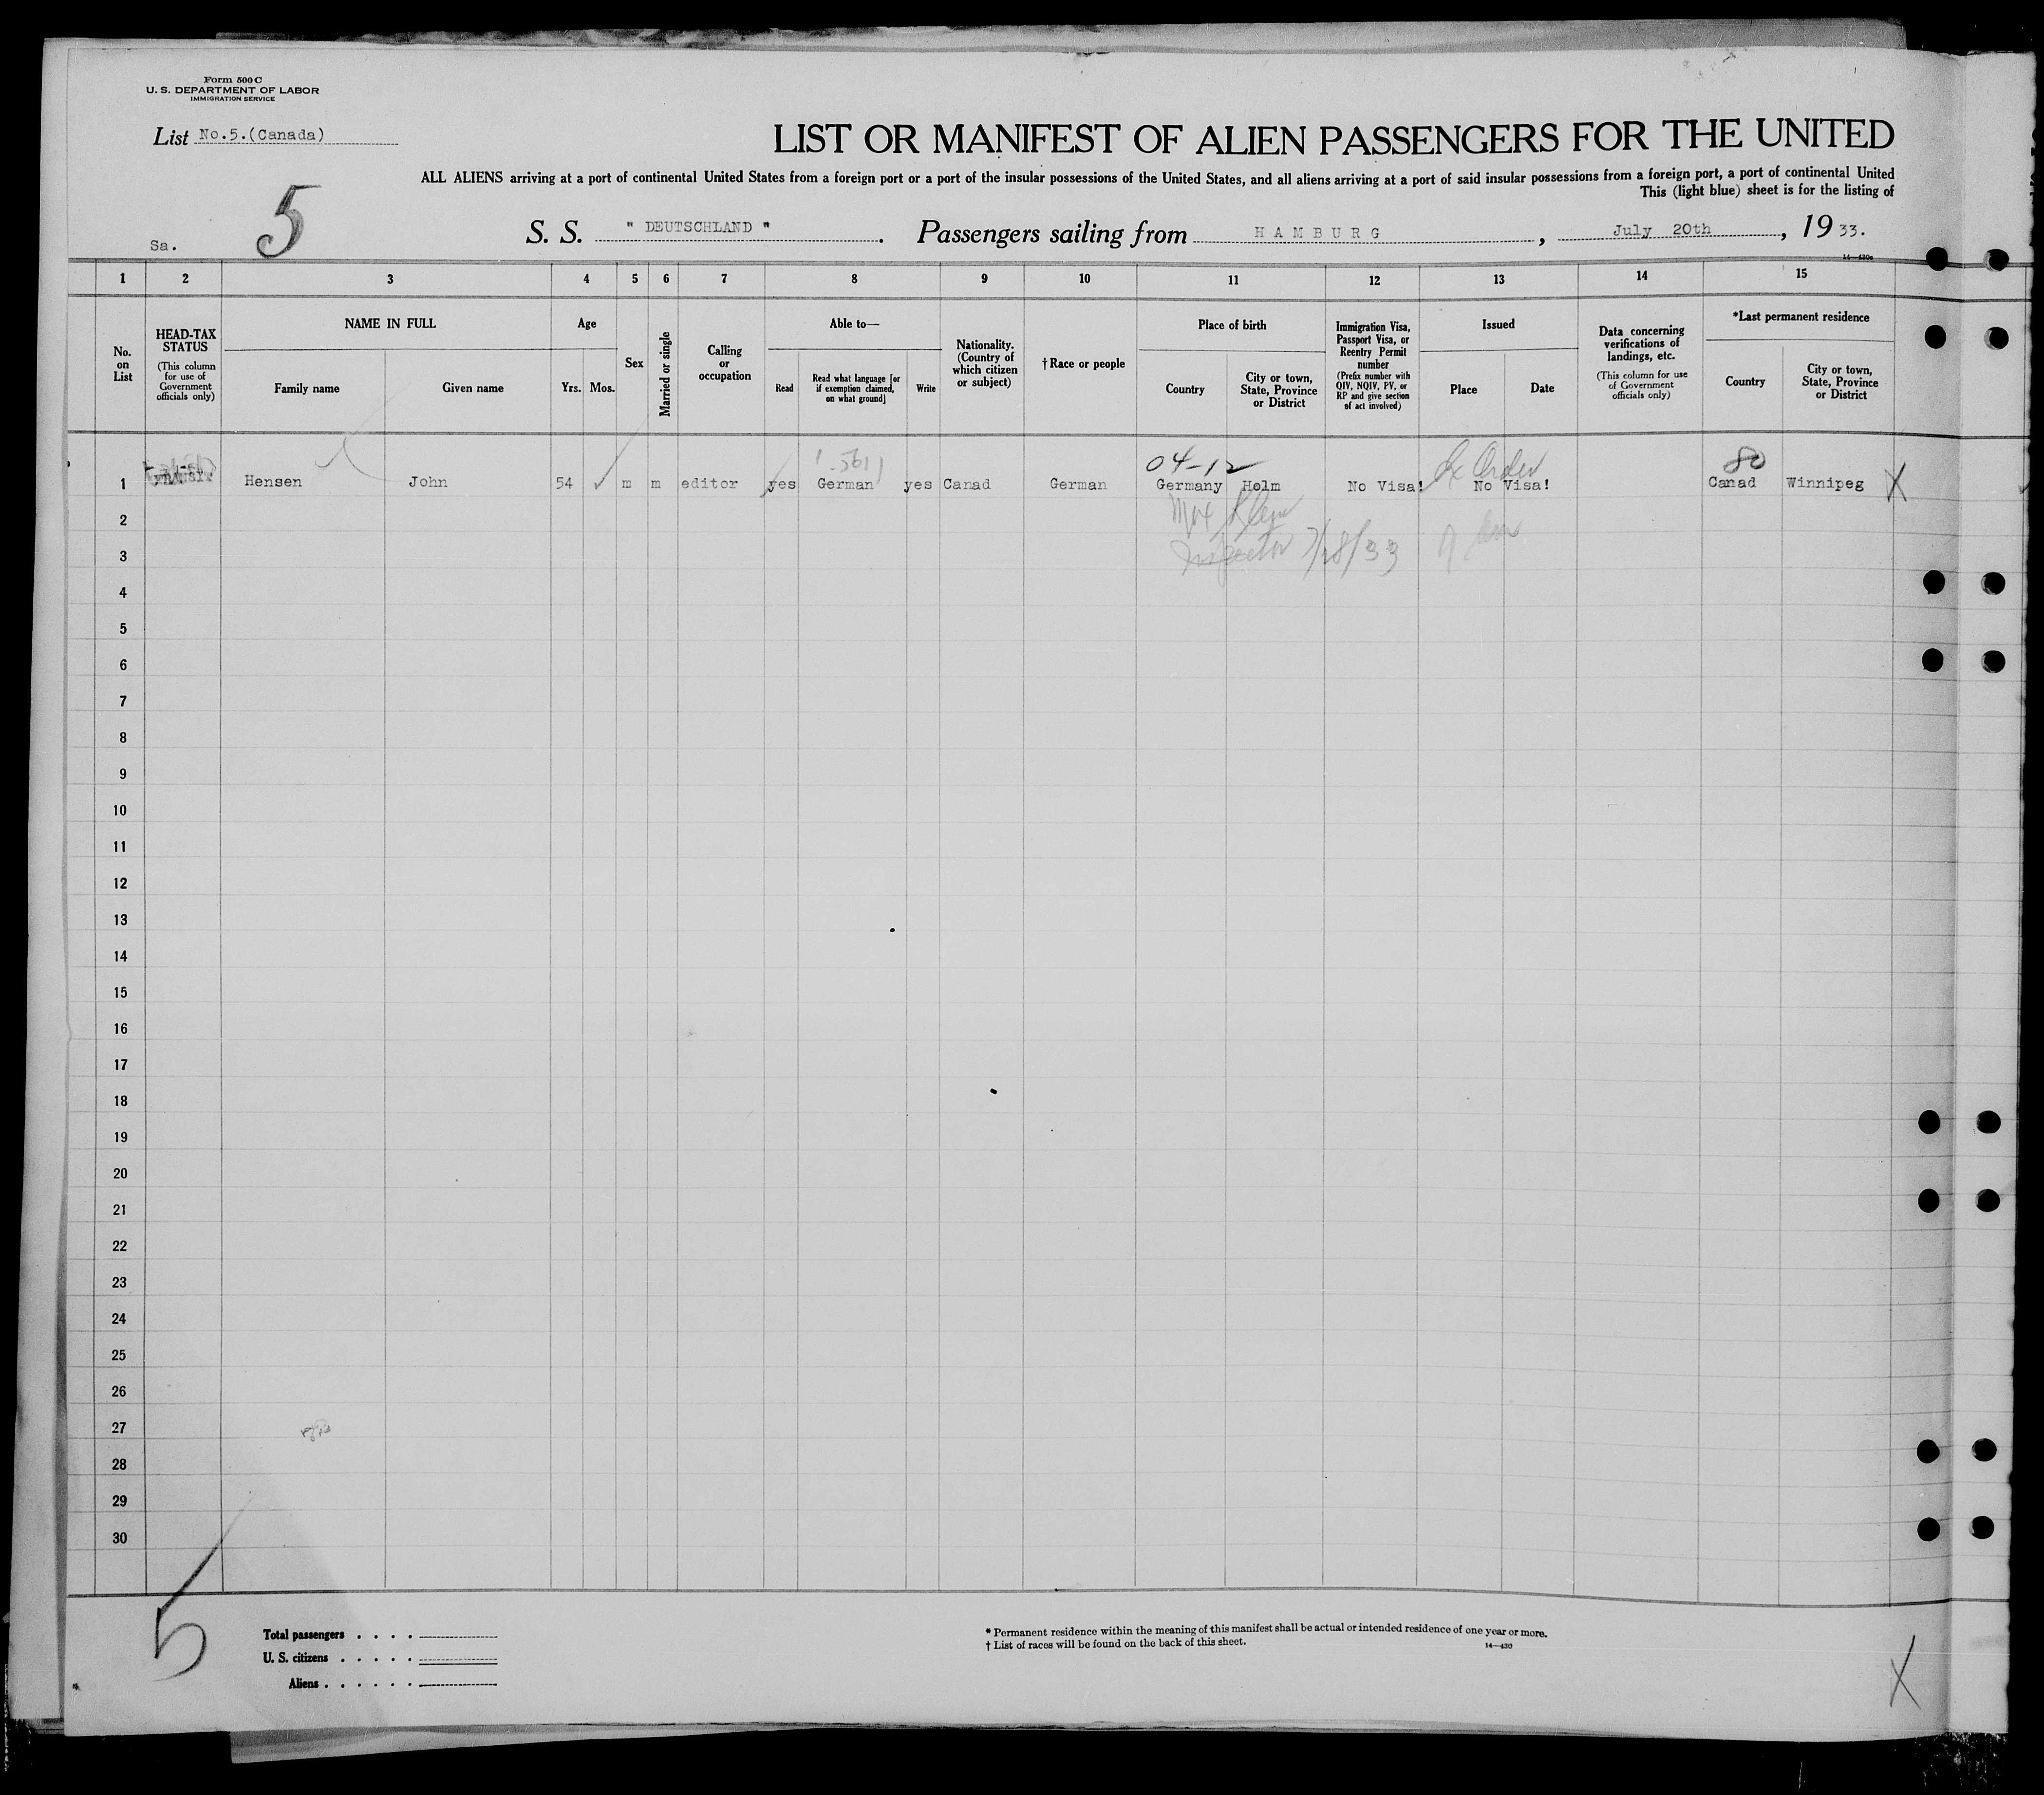 Form 500 C
U. S. DEPARTMENT OF LABOR
IMMIGRATION SERVICE
List No.5.(Canada)
LIST OR MANIFEST OF ALIEN PASSENGERS FOR THE UNITED
ALL ALIENS arriving at a port of continental United States from a foreign port or a port of the insular possessions of the United States, and all aliens arriving at a port of said insular possessions from a foreign port, a port of continental United
This (light blue) sheet is for the listing of
5
Sa.
S. S. " DEUTSCHLAND " . Passengers sailing from H A M B U R G , July 20th , 19 33.
14—430a
1 2 3 4 5 6 7 8 9 10 11 12 13 14 15
No. on List
HEAD-TAX STATUS
(This column for use of Government officials only)
NAME IN FULL
Family name
Given name
Age
Yrs. Mos.
Sex
Married or single
Calling or occupation
Able to—
Read
Read what language [or if exemption claimed, on what ground]
Write
Nationality. (Country of which citizen or subject)
† Race or people
Place of birth
Country
City or town, State, Province or District
Immigration Visa, Passport Visa, or Reentry Permit number
(Prefix number with QIV, NQIV, PV, or RP and give section of act involved)
Issued
Place
Date
Data concerning verifications of landings, etc.
(This column for use of Government officials only)
*Last permanent residence
Country
City or town, State, Province or District
04-12 80
1 Hensen John 54 ✓ m m editor yes German yes Canad German Germany Holm No Visa! No Visa! Canad Winnipeg X
2
Inspector 7/28/33
3
4
5
6
7
8
9
10
11
12
13
14
15
16
17
18
19
20
21
22
23
24
25
26
27
28
29
30
5
Total passengers . . . .
U. S. citizens . . . . .
Aliens . . . . . .
* Permanent residence within the meaning of this manifest shall be actual or intended residence of one year or more.
† List of races will be found on the back of this sheet.
14—430
X